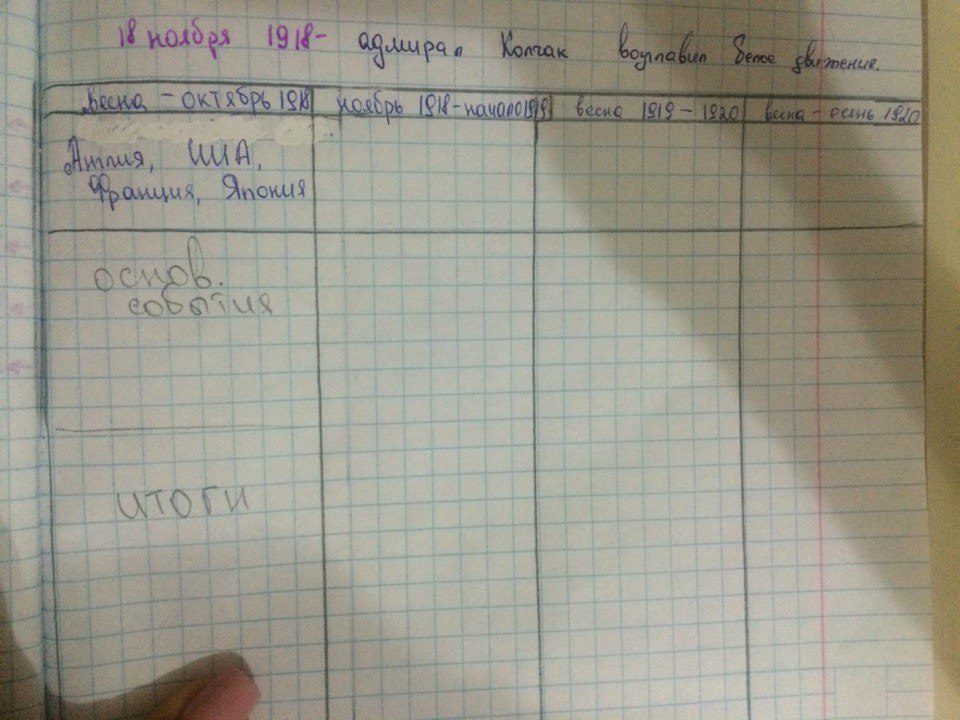 18 ноября 1918- адмирал Колчак возглавил Белое движение.
весна - октябрь 1918
ноябрь 1918-начало 1919
весна 1919 - 1920
весна - осень 1920
Англия, США,
Франция, Япония
основ.
события
итоги